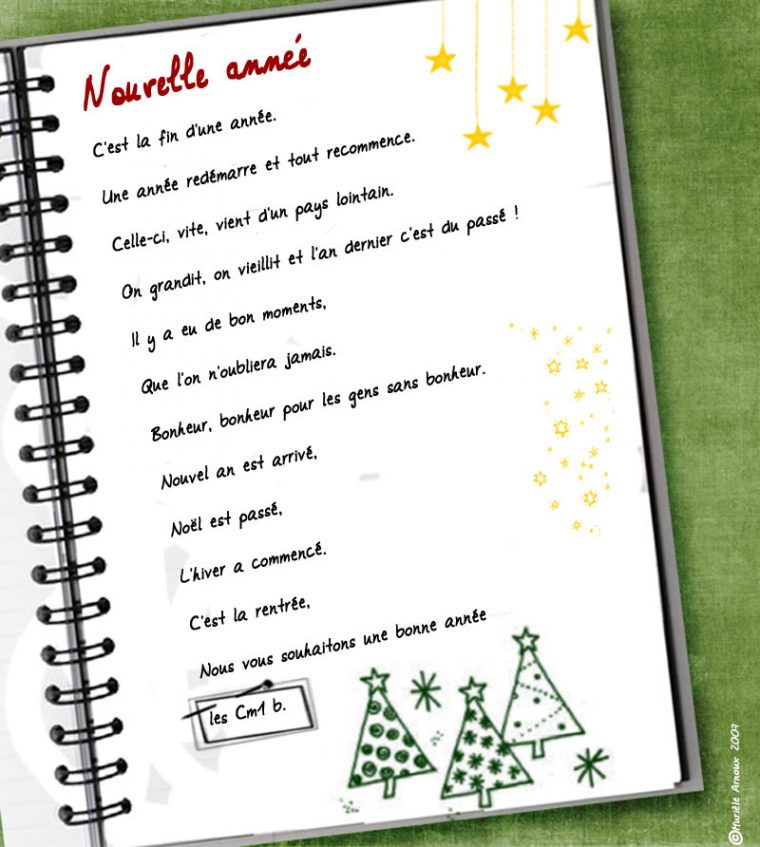 Nouvelle année
C'est la fin d'une année.
Une année redémarre et tout recommence.
Celle-ci, vite, vient d'un pays lointain.
On grandit, on vieillit et l'an dernier c'est du passé !
Il y a eu de bon moments,
Que l'on n'oubliera jamais.
Bonheur, bonheur pour les gens sans bonheur.
Nouvel an est arrivé,
Noël est passé,
L'hiver a commencé.
C'est la rentrée,
Nous vous souhaitons une bonne année
les Cm1 b.
©Murièle Arnoux 2007